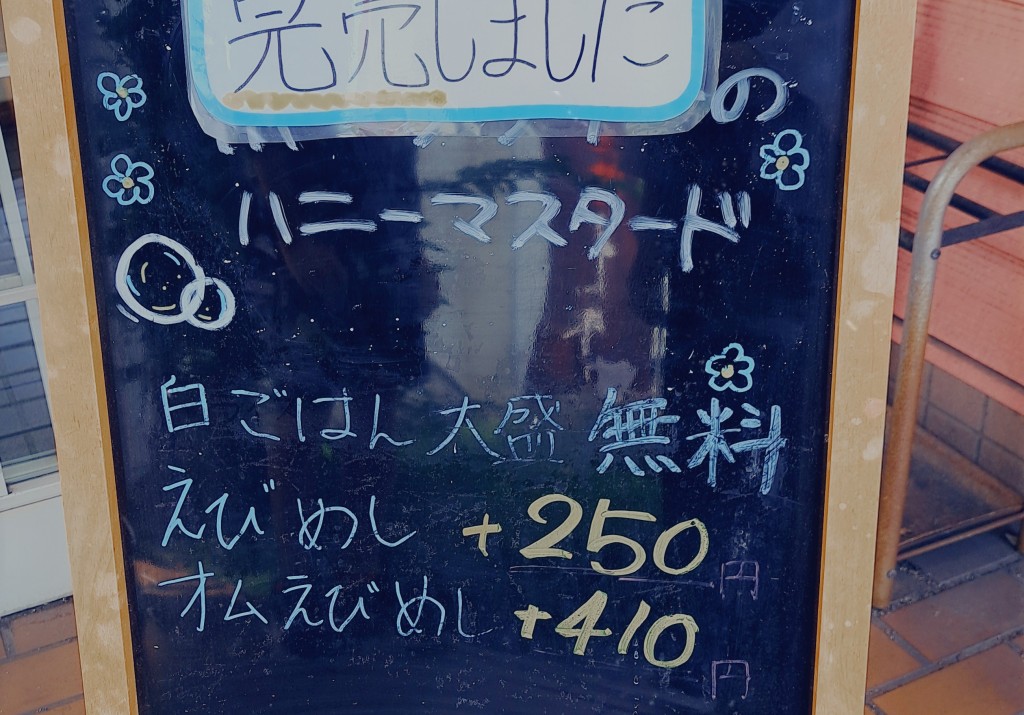 完売しました
の
ハニーマスタード
白ごはん 大盛 無料
えびめし +250円
オムえびめし +410円